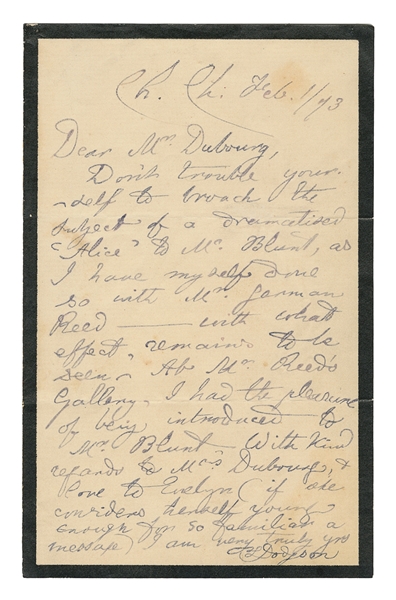 Ch. Ch: Feb. 1/73
Dear Mr. Dubourg,
Don't trouble your-
-self to broach the
subject of a dramatised
"Alice" to Mr. Blunt, as
I have myself done
so with Mrs. German
Reed —— with what
effect, remains to be
seen. At Mrs. Reed's
Gallery, I had the pleasure
of being introduced to
Mr. Blunt — With kind
regards to Mrs Dubourg, &
love to Evelyn (if she
considers herself young
enough for so familiar a
message) I am very truly yrs
CLDodgson